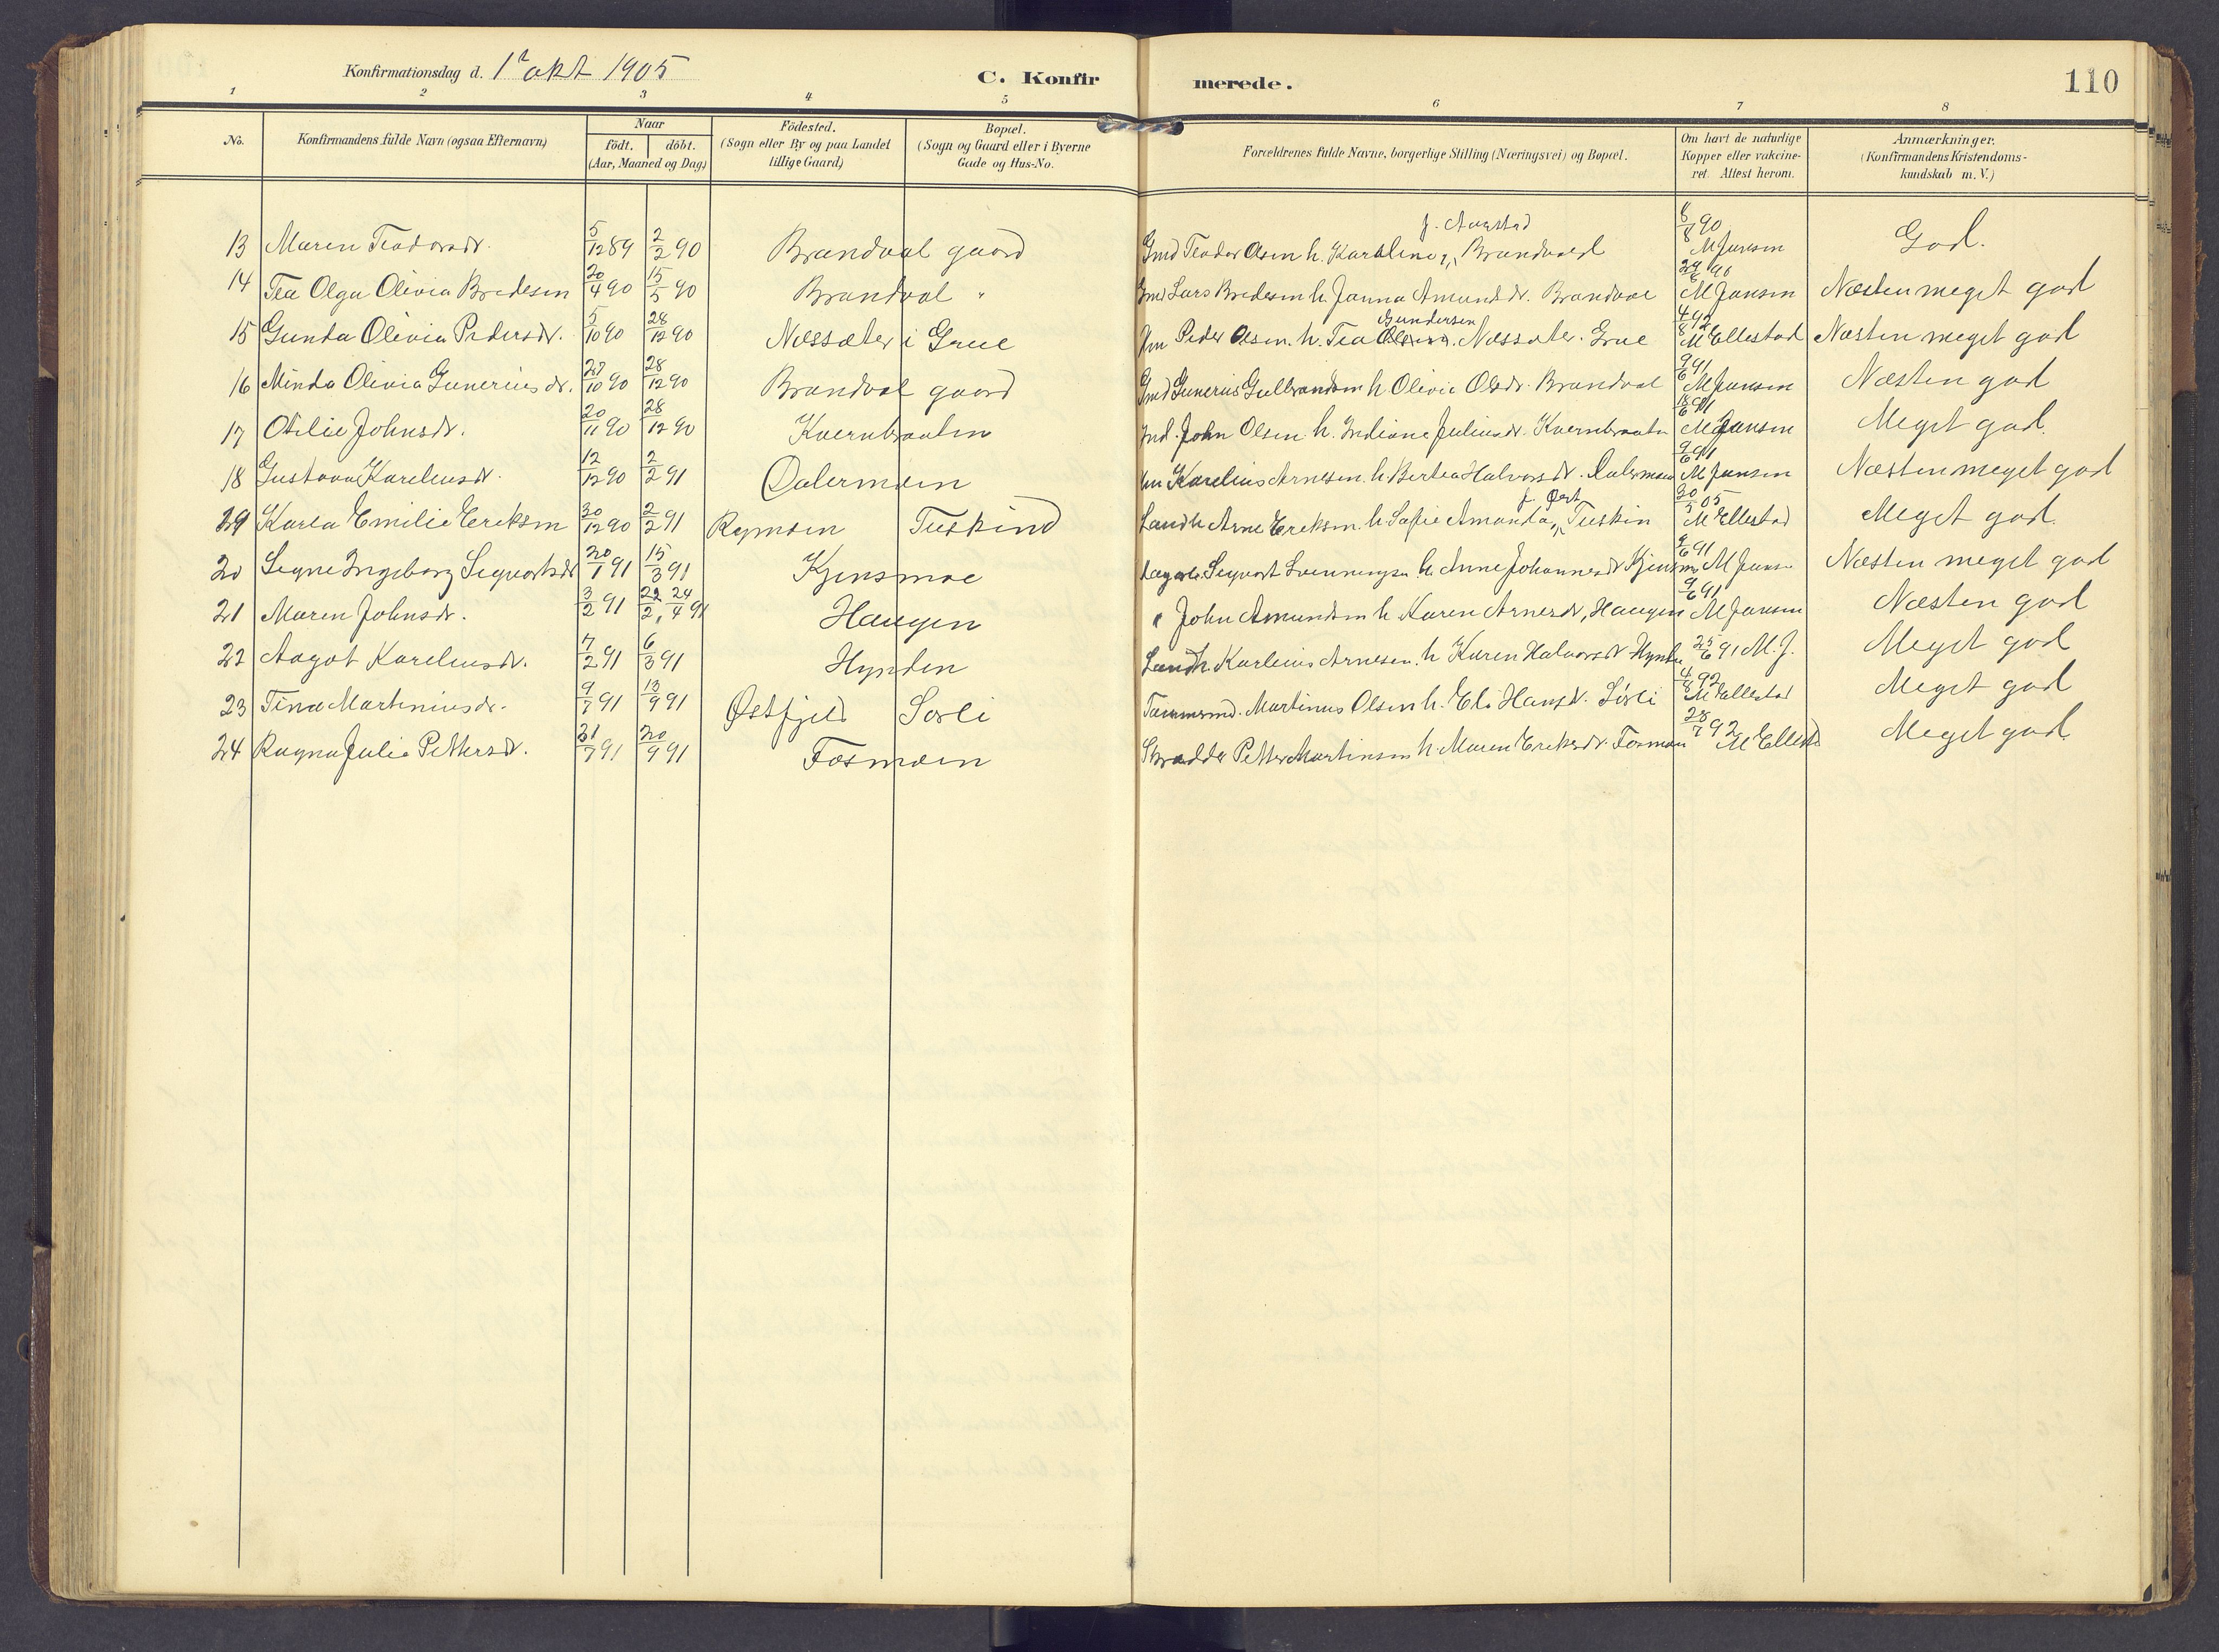 Konfirmationsdag d. 1ᵗ okt 1905
C. Konfirmerede.
110
1 2 3 4 5 6 7 8
No. | Konfirmandens fulde Navn (ogsaa Efternavn) | Naar født. døbt. (Aar, Maaned og Dag) | Fødested. (Sogn eller By og paa Landet tillige Gaard) | Bopæl. (Sogn og Gaard eller i Byerne Gade og Hus-No. | Forældrenes fulde Navne, borgerlige Stilling (Næringsvei) og Bopæl. | Om havt de naturlige Kopper eller vakcineret. Attest herom. | Anmærkninger. (Konfirmandens Kristendomskundskab m.V.)
13 Maren Teodorsdr. 5/12 89 2/2 90 Brandval gaard Gmd Teodor Olsen h. Karoline f. Aarstad, Brandval 8/8 90 M Jansen God.
14 Tea Olga Olivia Bredesen 20/4 90 15/5 90 Brandval " Gmd Lars Bredesen h. Janna Amundsdr. Brandval 29/6 90 M Jansen Næsten meget god
15 Gunda Olivia Pedersdr. 5/10 90 28/12 90 Næssæter i Grue Peder Olsen h. Tea Gundersen Næssæter. Grue 4/8 92 M Ellestad Næsten meget god
16 Minda Olivia Guneriusdr. 27/10 90 28/12 90 Brandval gaard Gmd Gunerius Gulbrandsen h Olivia Olsdr. Brandval 9/6 91 M Jansen Næsten god
17 Otilie Johnsdr. 20/11 90 28/12 90 Kvernbraaten Ind. John Olsen h. Indiane Juliusdr. Kvernbraaten 18/6 91 M Jansen Meget god.
18 Gustava Kareliusdr. 12/12 90 2/2 91 Dalermoen Karelius Arnesen. h. Bertea Halvorsdr. Dalermoen 9/6 91 M Jansen Næsten meget god
29 Karla Emilie Eriksen 30/12 90 2/2 91 Rymoen Tuskind Landh. Arne Eriksen. h. Sofie Amanda f. Øest, Tuskin 30/5 05 M Ellestad Meget god.
20 Segne Ingeborg Segvartsdr 20/1 91 15/3 91 Kjensmoe Segvart Svenningsen h. Anne Johannesdr Kjensmo 9/6 91 M Jansen Næsten meget god
21 Maren Johnsdr. 3/2 91 22/2, 24/4 91 Haugen " John Amundsen h. Karen Arnesdr, Haugen 9/6 91 M Jansen Næsten god
22 Aagot Kareliusdr. 7/2 91 6/3 91 Hynden Landh. Karelius Arnesen. h Karen Halvorsdr Hynden 25/6 91 M. J. Meget god
23 Tina Martiniusdr. 9/7 91 13/9 91 Østfjeld Sorli Tømmermd. Martinus Olsen h. Eli Hansdr. Sörli 4/8 92 M Ellestad Meget god
24 Ragna Julie Pettersdr. 21/7 91 20/9 91 Fosmoen Skrædder Petter Martinsen h. Maren Eriksdr. Fosmoen 28/7 92 M Ellestad Meget god.